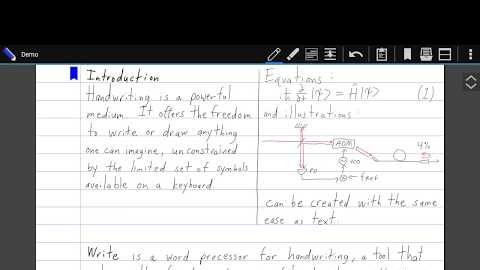 Demo
Introduction
Handwriting is a powerful
medium. It offers the freedom
to write or draw anything
one can imagine, unconstrained
by the limited set of symbols
available on a keyboard.
Equations:
iħ ∂/∂t |ψ⟩ = Ĥ|ψ⟩ (1)
and illustrations
AOM
4%
VCO
PD
fREF
can be created with the same
ease as text.
Write is a word processor for handwriting, a tool that